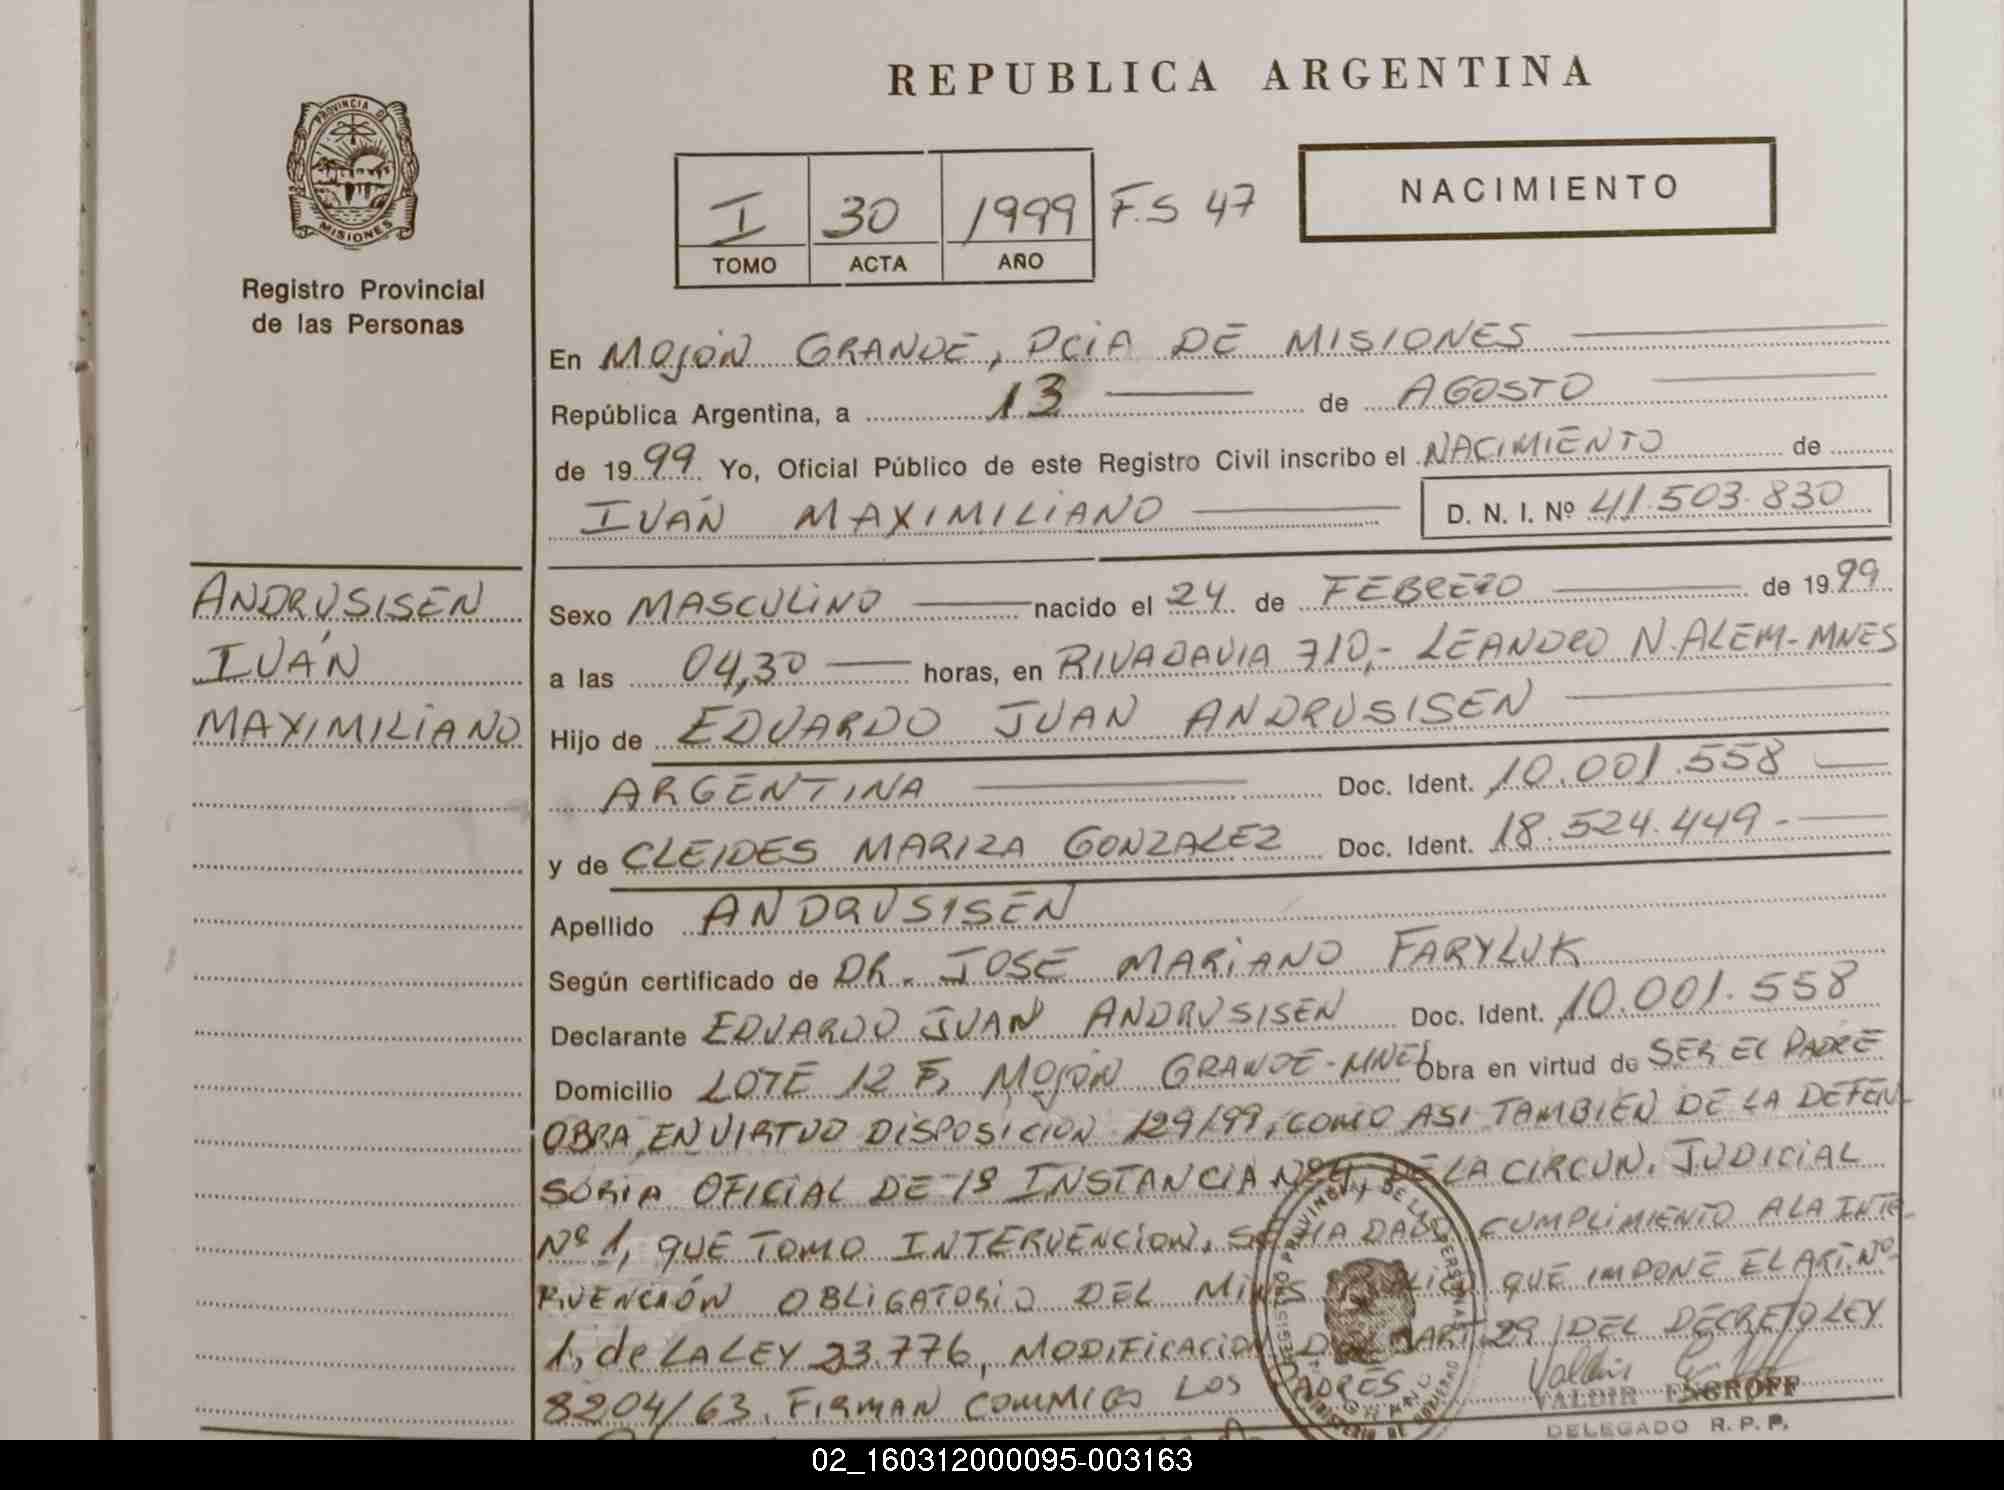 PROVINCIA DE
MISIONES
Registro Provincial
de las Personas
ANDRUSISEN
IVÁN
MAXIMILIANO
REPUBLICA ARGENTINA
I 30 1999 F.S 47
TOMO ACTA AÑO
NACIMIENTO
En MOJÓN GRANDE, PCIA DE MISIONES
República Argentina, a 13 de AGOSTO
de 1999 Yo, Oficial Público de este Registro Civil inscribo el NACIMIENTO de
IVÁN MAXIMILIANO D. N. I. Nº 41.503.830
Sexo MASCULINO nacido el 24 de FEBRERO de 1999
a las 04,30 horas, en RIVADAVIA 710,- LEANDRO N.ALEM-MNES
Hijo de EDUARDO JUAN ANDRUSISEN
ARGENTINA Doc. Ident. 10.001.558
y de CLEIDES MARIZA GONZALEZ Doc. Ident. 18.524.449-
Apellido ANDRUSISEN
Según certificado de DR. JOSE MARIANO FARYLUK
Declarante EDUARDO JUAN ANDRUSISEN Doc. Ident. 10.001.558
Domicilio LOTE 12 F, MOJÓN GRANDE-MNES Obra en virtud de SER EL PADRE
OBRA, EN VIRTUD DISPOSICION 129/99, COMO ASI TAMBIEN DE LA DEFEN-
SORIA OFICIAL DE 1º INSTANCIA Nº 4 DE LA CIRCUN. JUDICIAL
Nº 1, QUE TOMO INTERVENCION, SE HA DADO CUMPLIMIENTO A LA INTE-
RVENCIÓN OBLIGATORIO DEL MINIS QUE IMPONE EL ART. Nº
1, de LA LEY 23.776, MODIFICACION DEL ART 29 DEL DECRETO LEY
8204/63. FIRMAN COMMIGO LOS PADRES
VALDIR ENGROFF
DELEGADO R.P.P.
02_160312000095-003163